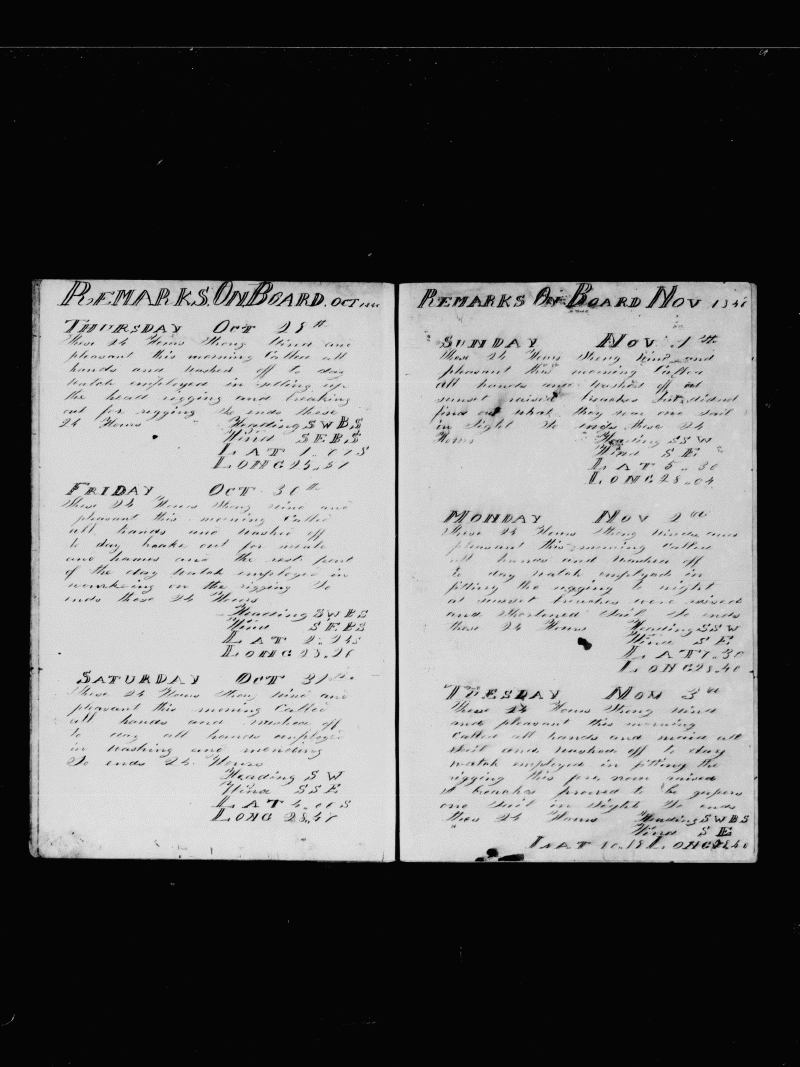 REMARKS. ON BOARD. OCT
THURSDAY OCT 29th
These 24 Hours Strong wind and
pleasant this morning Called all
hands and washed off to day
watch employed in setting up
the head rigging and breaking
out for rigging So ends these
24 Hours Heading SWBS
Wind SEBS
LAT 1..01S
LONG
FRIDAY OCT 30th
These 24 Hours Strong wind and
pleasant this morning Called
all hands and washed off
to day broke out for meate
and hams and the rest part
of the day watch employed in
working on the rigging So
ends these 24 Hours
Heading SWBS
Wind SEBS
LAT 2..24S
LONG
SATURDAY OCT 31st
These 24 Hours Strong wind and
pleasant this morning Called
all hands and washed off
to day all hands employed
in washing and mending
So ends 24 Hours
Heading S W
Wind SSE
LAT 4..00S
LONG 28,47
REMARKS ON BOARD NOV
SUNDAY NOV 1st
These 24 Hours Strong wind and
pleasant this morning Called
all hands and washed off at
sunset raised breaches but didnt
find out what they was one sail
in Sight So ends these 24
Hours Heading SSW
Wind S E
LAT 5..30
LONG 28..04
MONDAY NOV 2nd
These 24 Hours Strong winds and
pleasant this morning Called
all hands and washed off
to day watch employed in
fitting the rigging to night
at sunset breaches were raised
and Shortened Sail So ends
these 24 Hours Heading SSW
Wind S E
LAT 7..30
LONG 28.40
TUESDAY NOV 3rd
These 24 Hours Strong wind
and pleasant this morning
Called all hands and maid all
Sail and washed off to day
watch employed in fitting the
rigging this fore noon raised
breaches proved to be
one Sail in Sight So ends
these 24 Hours Heading SWBS
Wind S E
LAT 10..18 LONG